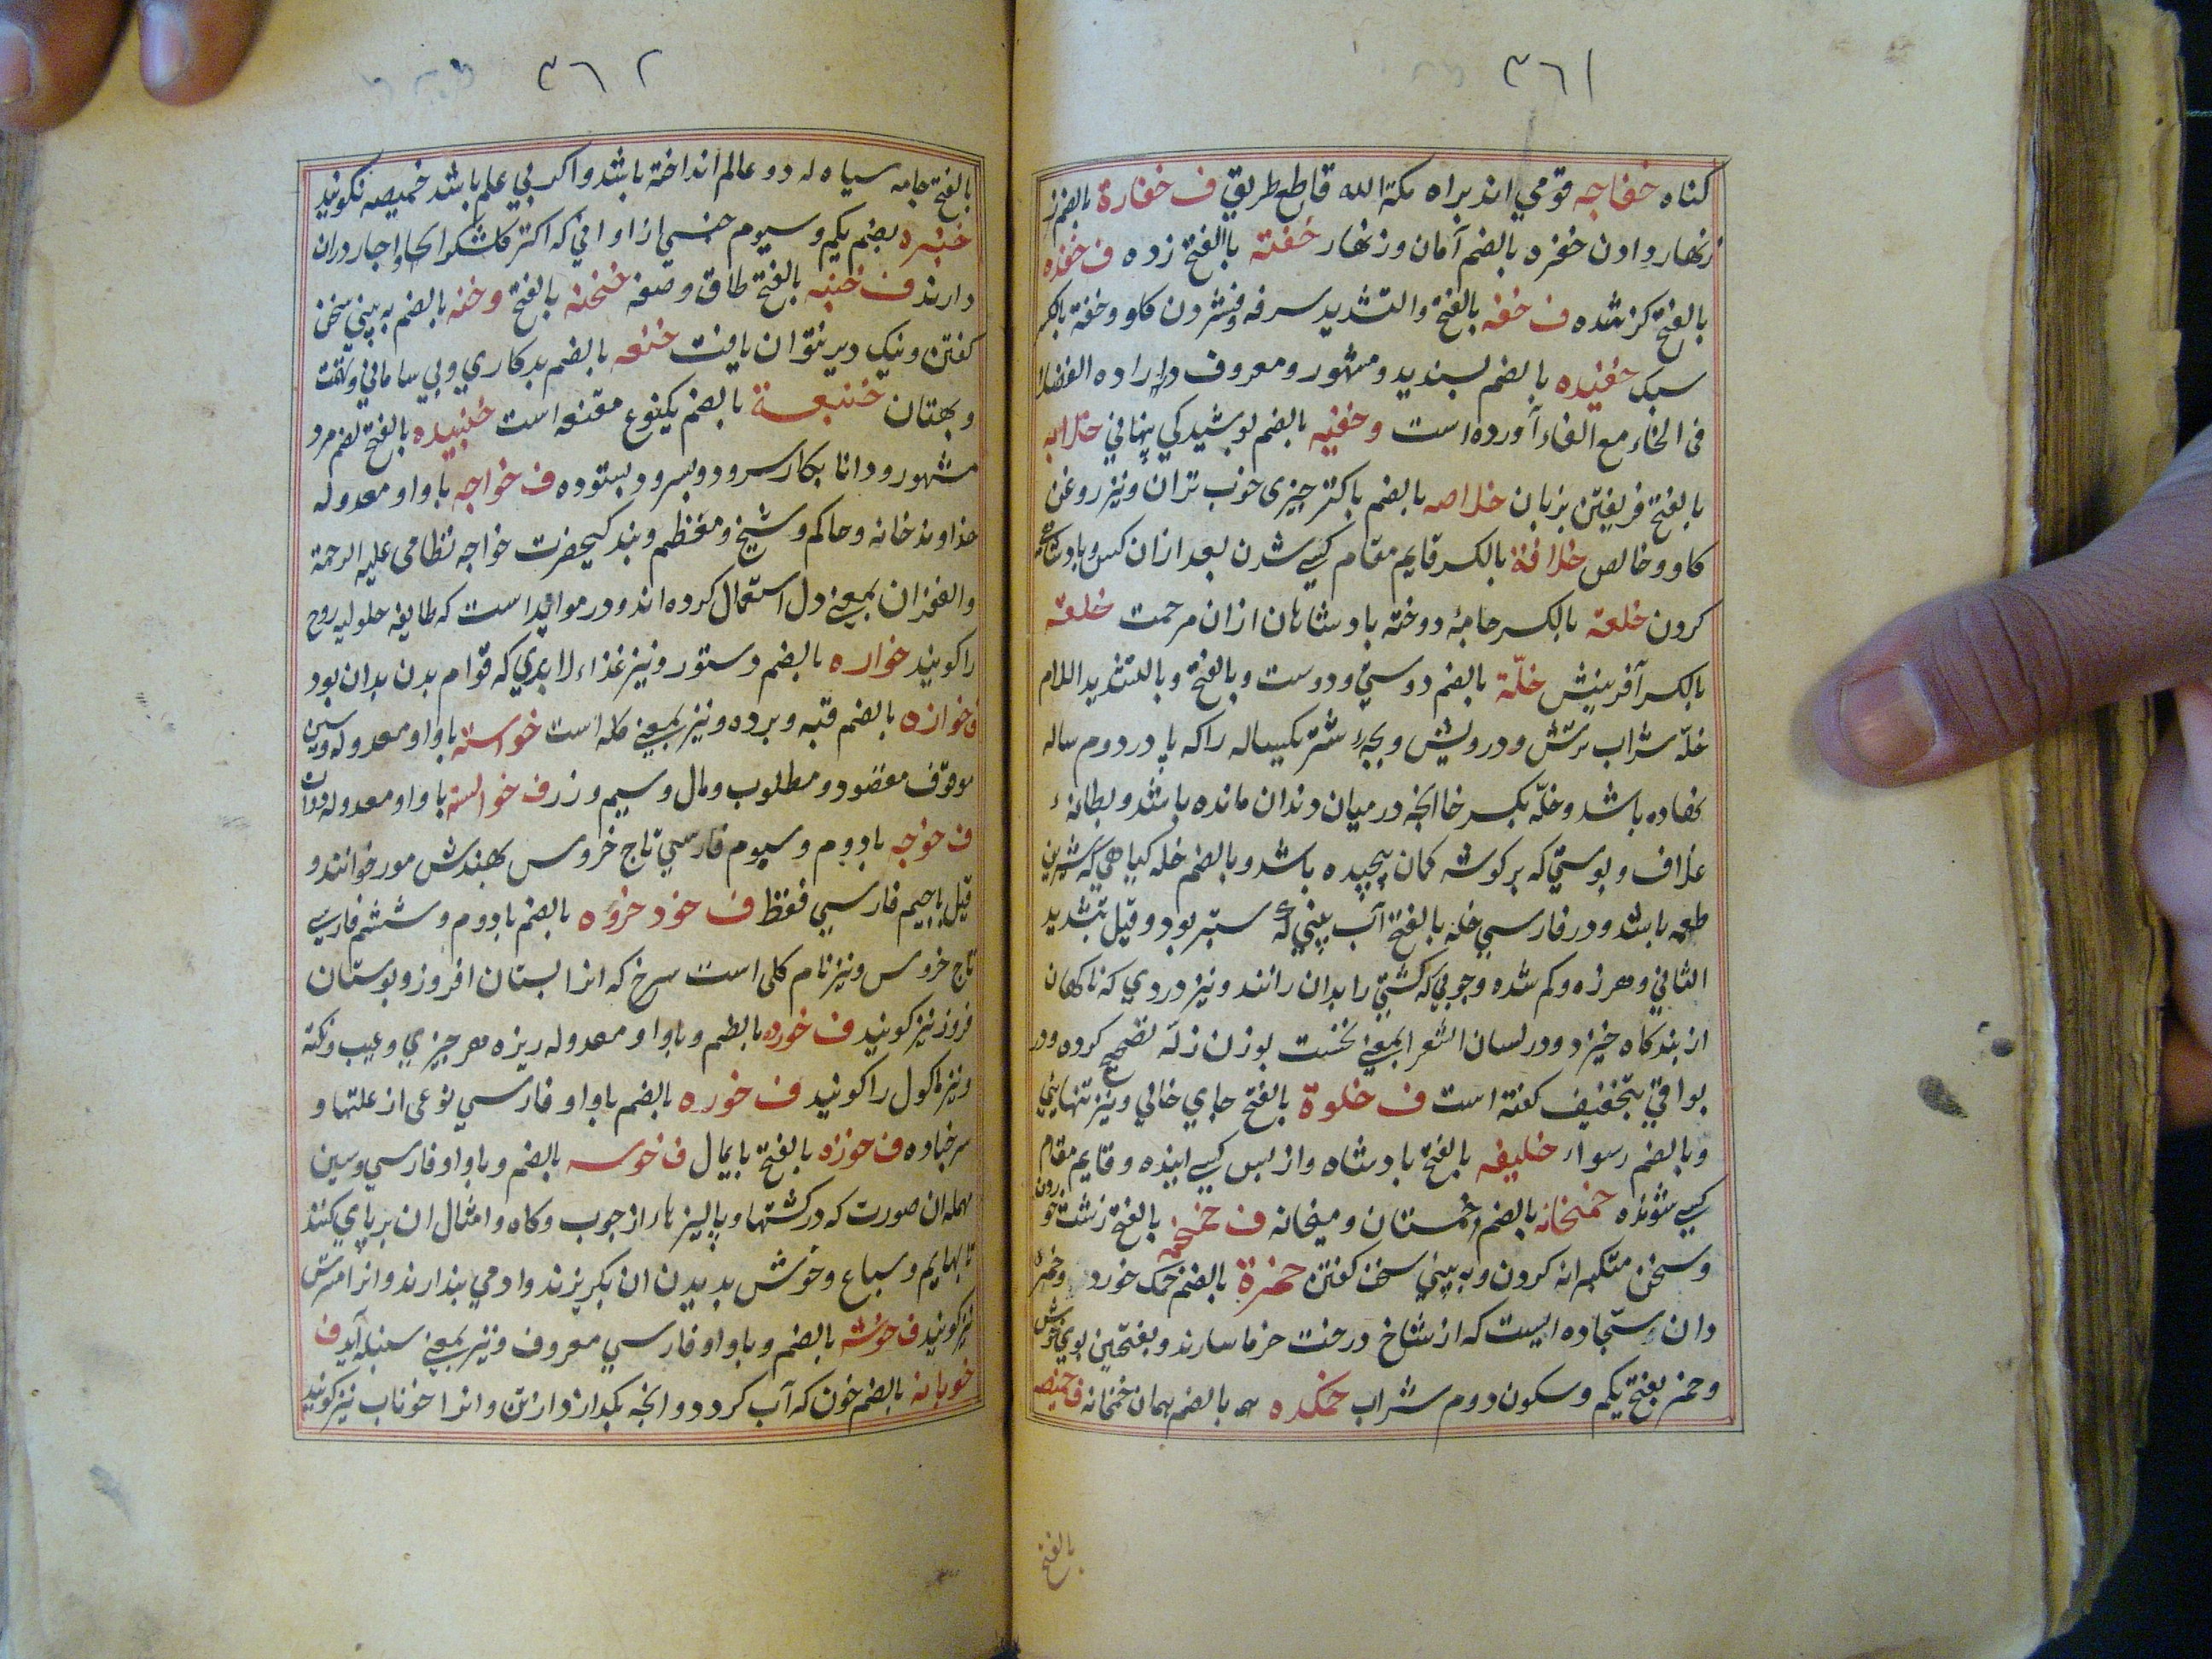 ٣٦١
كناه خفاجه قومي اند براه مكة الله قاطع طريق ف خفارة بالضم ز
زنهار دادن خفره بالضم آمان و زنهار خفته بالفتح زده ف خفده
بالفتح كژ شده ف خفه بالفتح والتشديد سرفه و فشردن كاو و خفة بالكسر
سبك خفيده بالضم پسنديد و مشهور و معروف در اداه الفضلا
فى الخاء مع الفاء آورده است و خفيه بالضم پوشيدكي پنهاني خلابه
بالفتح فريفتن بزبان خلاصه بالضم پاكتر چيزى خوب تر ان و نيز روغن
كاو و خالص خلافة بالكسر قايم مقام كسي شدن بعد از ان كس و پادشاهي
كردن خلعة بالكسر جامهٔ دوخته پادشاهان از ان مرحمت خلقة
بالكسر آفرينش خلّة بالضم دوستي و دوست و بالفتح و بالتشديد اللام
خلّه شراب ترش و درويش و بچهٔ شتر يكساله را كه پا در دوم ساله
نهاده باشد و خلّه بكسر خا انچه در ميان دندان مانده باشد و بطانهٔ
غلاف و پوستي كه بر كوشه كمان پيچيده باشد و بالضم خله كياهي كه شيرين
طعم باشد و در فارسي خله بالفتح آب بيني كه ستبر بود و قيل بتشديد
الثاني و هرزه و كم شده و چوبي كه كشتي را بدان رانند و نيز دردي كه ناكهان
از بندكاه خيزد و در لسان الشعرا بمعني نخست بوزن زلّه تصحيح كرده و در
بواقي بتخفيف كفته است ف خلوة بالفتح جاي خالي و نيز تنهايي
و بالضم رسوا خليفه بالفتح پادشاه و از پس كسي اينده و قايم مقام
كسي شونده خمخانه بالضم خمستان و ميخانه ف خمخمه بالفتح زشت خوردن
و سخن متكبرانه كردن و به بيني سخن كفتن خمرة بالضم خمك خورد و خمره
دان و سجاده ايست كه از شاخ درخت خرما سازند و بفتحتين بوي خوش
و خمر بفتح يكم و سكون دوم شراب خمكده هم بالضم همان خمخانه ف خميصه
بالفتح
٣٦٢
بالفتح جامه سياه كه دو عالم انداخته باشد و اكر بي علم باشد خميصه نكويند
خنبره بضم يكم و سيوم جنسي از اواني كه اكثر دران
دارند ف خنبه بالفتح طاق و صفه خنخنه بالفتح و خنه بالضم به بيني سخن
كفتن و نيك دير نتوان يافت خنعه بالضم بدكاري و بي ساماني و تهمت
و بهتان خنبعة بالضم يكنوع مقنعه است خنبيده بالفتح لضم مرد
مشهور و دانا بكار سرود و بسرود بستوده ف خواجه با واو معدوله
خداوند خانه و حاكم و شيخ و معظم و بندكيحضرت خواجه نظامى عليه الرحمة
والغفران بمعني دل استعمال كرده اند و در موايد است كه طايفه حلوليه روح
را كويند خواره بالضم دستور و نيز غذاء لابدي كه قوام بدن بدان بود
خوازه بالضم قبه و برده و نيز بمعني كله است خواسته با واو معدوله و سين
موقوف مقصود و مطلوب و مال و سيم و زر ف خوالسته با واو معدوله دوات
ف خوجه با دوم و سيوم فارسي تاج خروس بهندش مور خوانند و
قيل با جيم فارسي فقظ ف خود خروه بالضم با دوم و ششم فارسي
تاج خروس و نيز نام كلى است سرخ كه انرا بستان افروز و بوستان
فروز نيز كويند ف خورده بالضم و با واو معدوله ريزه هر چيزي و عيب و نكته
و نيز ماكول را كويند ف خوره بالضم با واو فارسي نوعى از علتها و
سرخباده ف خوزه بالفتح پايمال ف خوسه بالضم و با واو فارسي و سين
مهمله ان صورت كه در كشتها و پاليزها از چوب و كاه و امثال ان بر پاي كنند
تا بهايم و سباع و خوش بديدن ان بكريزند و ادمي پندارند و انرا مترس
نيز كويند ف خوشه بالضم و با واو فارسي معروف و نيز بمعني سنبله آيد ف
خونابه بالضم خون كه آب كردد و انچه بكدازد از تن و انرا خوناب نيز كويند